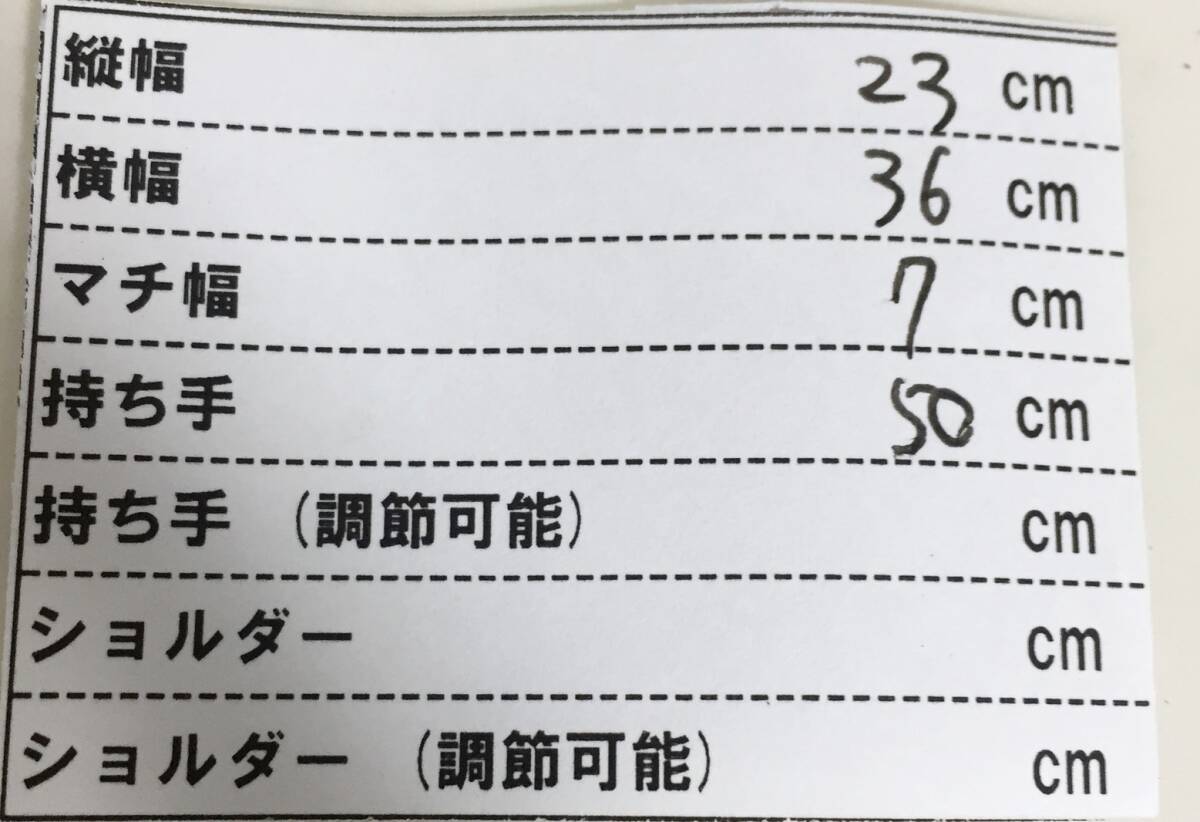 縦幅 23 cm
横幅 36 cm
マチ幅 7 cm
持ち手 50 cm
持ち手 (調節可能) cm
ショルダー cm
ショルダー (調節可能) cm